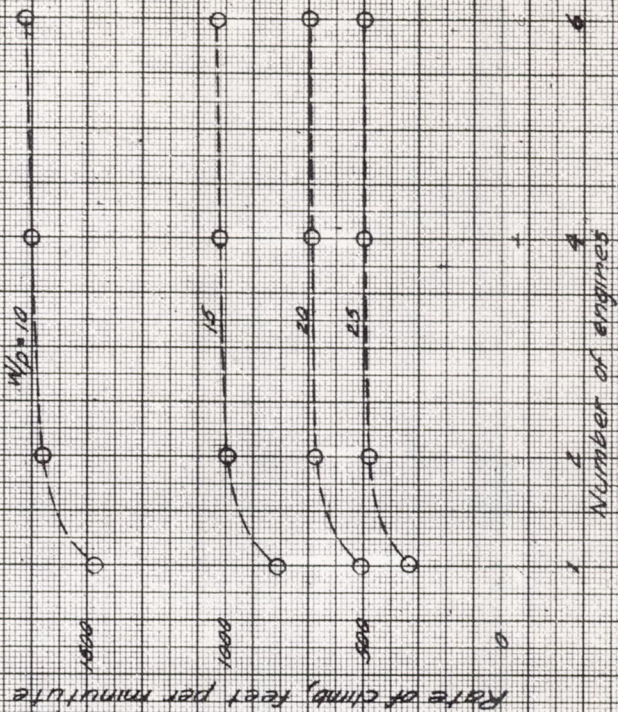 W/p = 10
15
20
25
1500
1000
500
0
1 2 4 6
Number of engines
Rate of climb, feet per minutute